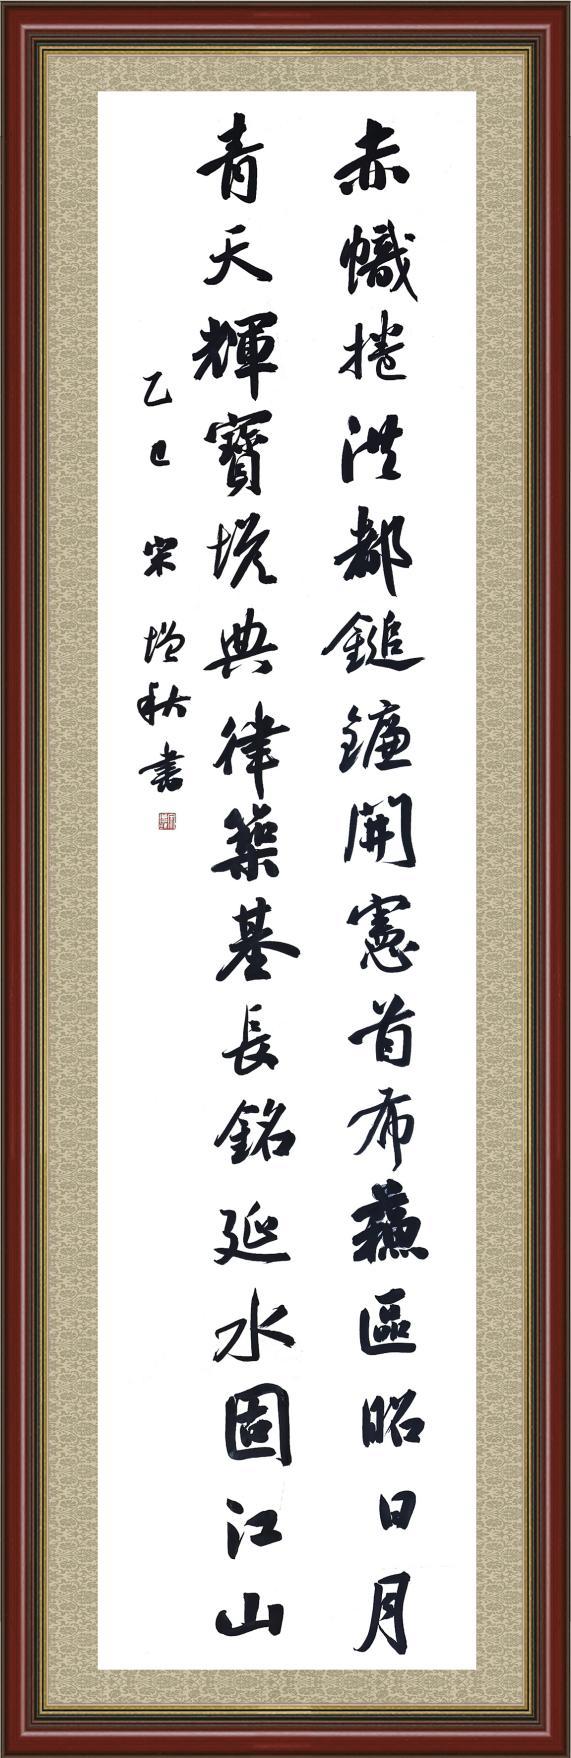 赤幟捲洪都鎚鐮開憲首布蘇區昭日月
青天輝寶塔典律築基長銘延水固江山
乙巳 宋增秋書